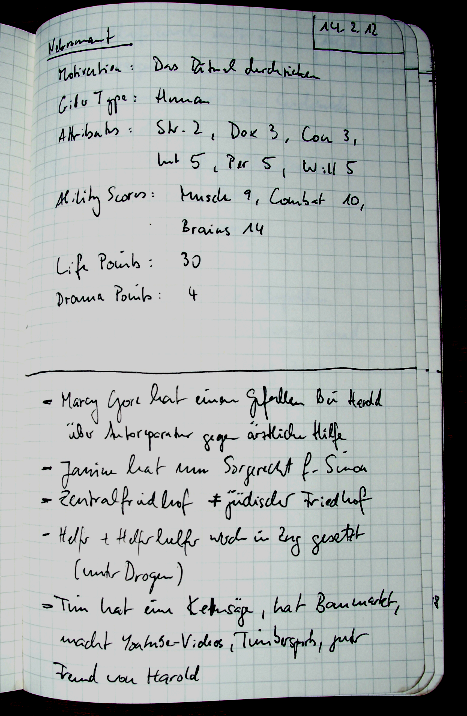 14.2.12
Nekromant
Motivation: Das Ritual durchziehen
Critter Type: Human
Attributes: Str. 2, Dex 3, Con 3,
Int 5, Per 5, Will 5
Ability Scores: Muscle 9, Combat 10,
Brains 14
Life Points: 30
Drama Points: 4
- Marcy Gore hat einen Gefallen bei Harold
über Autoreparatur gegen ärztliche Hilfe
- Janine hat nun Sorgerecht f. Simon
- Zentralfriedhof ≠ jüdischer Friedhof
- Helfer + Helfershelfer werden in Zug gesetzt
(unter Drogen)
- Tim hat eine Kettensäge, hat Baumarkt,
macht Youtube-Videos, Timbersports, guter
Freund von Harold